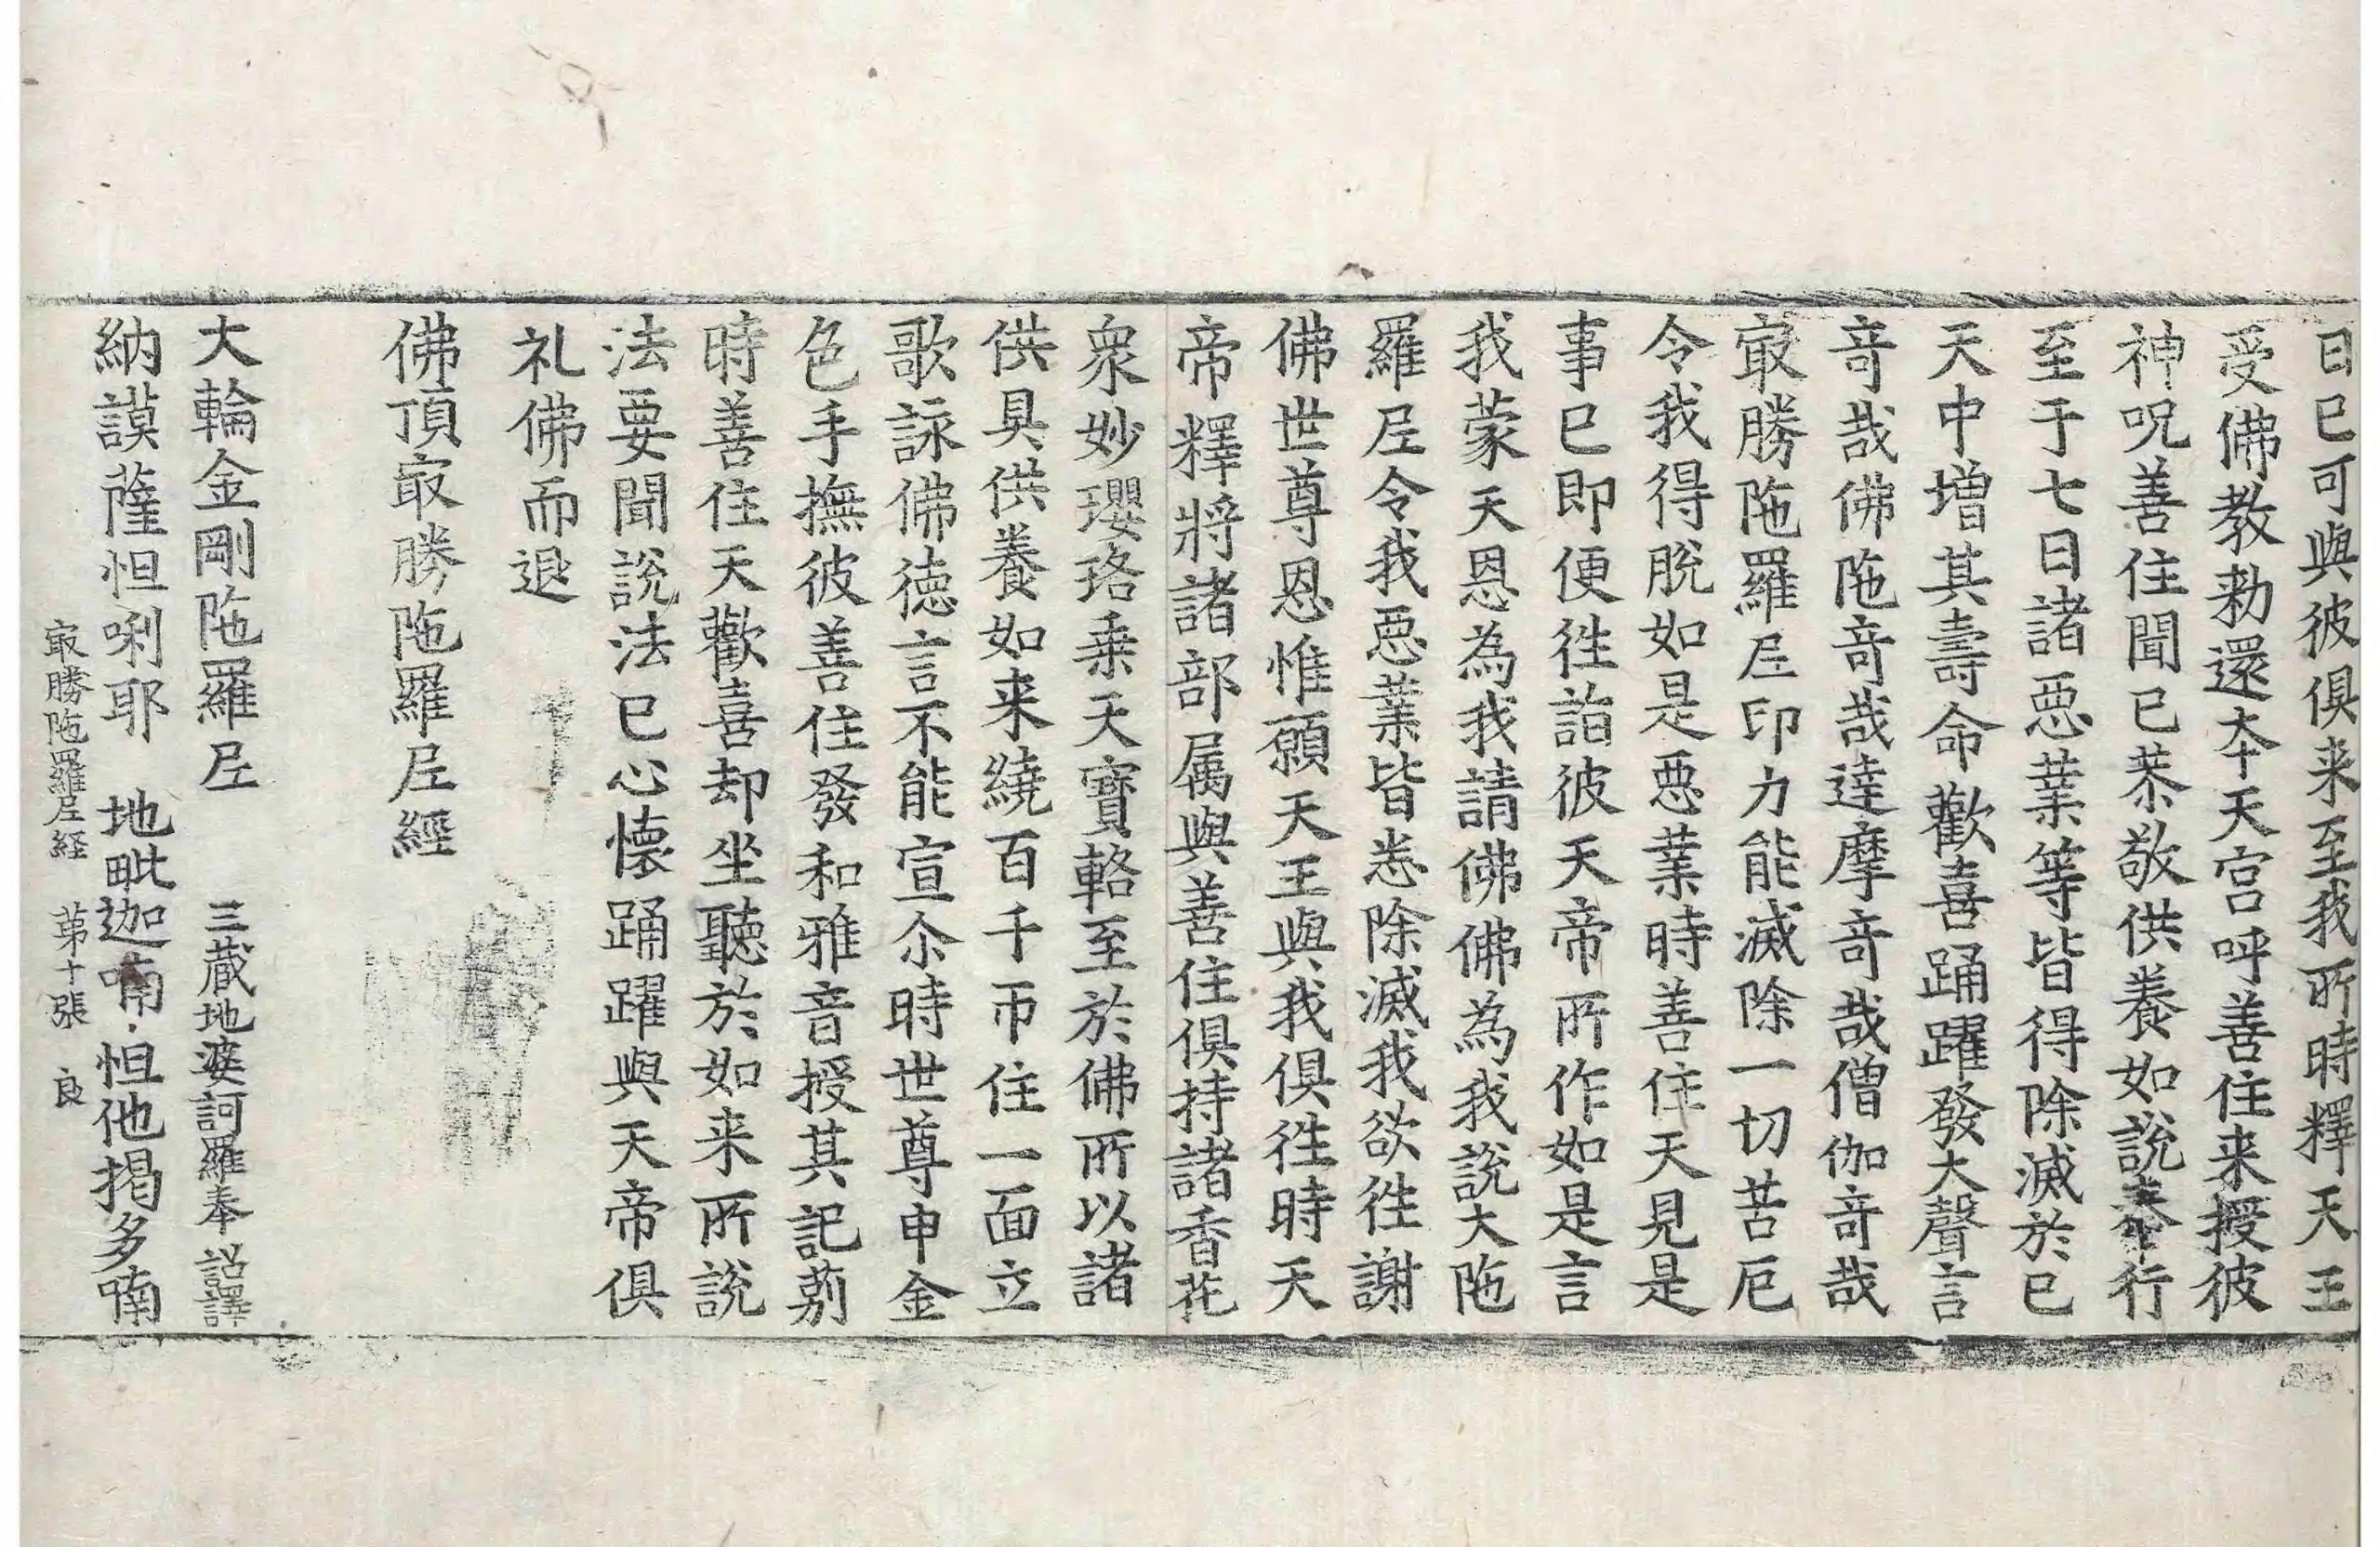 日已可與彼俱来至我所時釋天王
受佛教勑還本天宫呼善住来授彼
神呪善住聞已恭敬供養如說奉行
至于七日諸惡業等皆得除滅於已
天中增其壽命歡喜踊躍發大聲言
竒哉佛陁竒哉達摩竒哉僧伽竒哉
㝡勝陁羅𡰱印力能滅除一切苦厄
令我得脫如是惡業時善住天見是
事已即便徃詣彼天帝所作如是言
我蒙天恩為我請佛佛為我說大陁
羅𡰱令我惡業皆悉除滅我欲徃謝
佛世尊恩惟願天王與我俱徃時天
帝釋將諸部属與善住俱持諸香花
衆妙瓔珞乗天寶輅至於佛所以諸
供具供養如来繞百千帀住一面立
歌詠佛徳言不能宣尒時世尊申金
色手撫彼善住發和雅音授其記莂
時善住天歡喜却坐聽於如来所說
法要聞說法已心懐踊躍與天帝俱
礼佛而退
佛頂㝡勝陁羅𡰱經
大輪金剛陁羅𡰱　三藏地婆訶羅奉　詔譯
納謨薩怛唎耶　地毗迦喃　怛他揭多喃
㝡勝陁羅𡰱経　苐十張　良